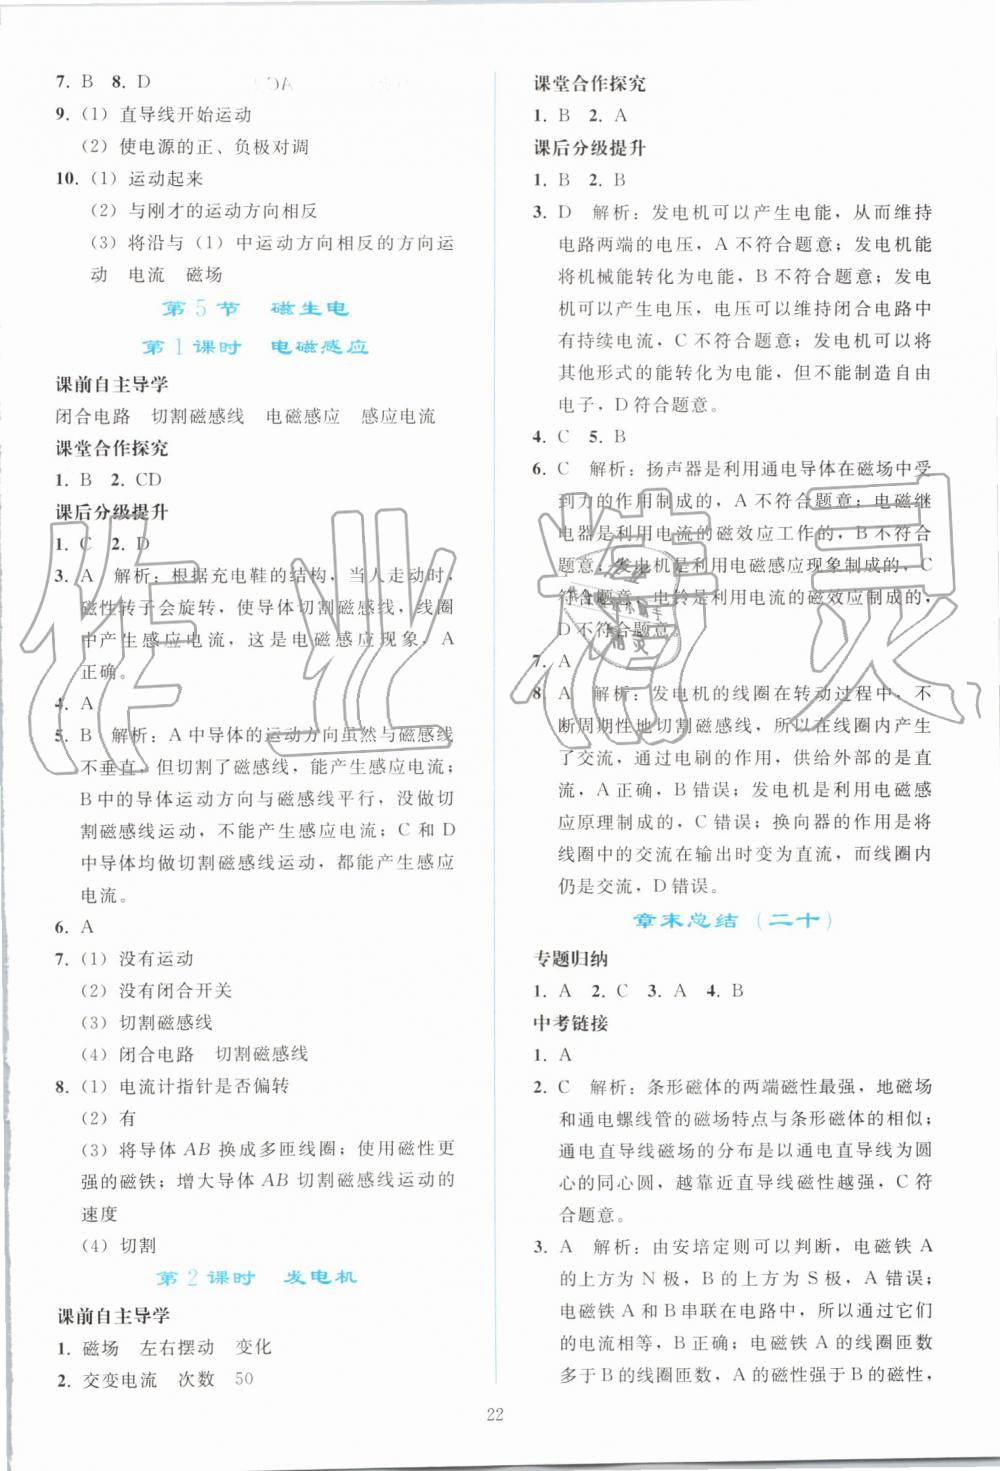 7. B  8. D
9. (1) 直导线开始运动
(2) 使电源的正、负极对调
10. (1) 运动起来
(2) 与刚才的运动方向相反
(3) 将沿与(1)中运动方向相反的方向运
动  电流  磁场
第5节  磁生电
第1课时  电磁感应
课前自主导学
闭合电路  切割磁感线  电磁感应  感应电流
课堂合作探究
1. B  2. CD
课后分级提升
1. C  2. D
3. A  解析：根据充电鞋的结构，当人走动时，
磁性转子会旋转，使导体切割磁感线，线圈
中产生感应电流，这是电磁感应现象，A
正确。
4. A
5. B  解析：A中导体的运动方向虽然与磁感线
不垂直，但切割了磁感线，能产生感应电流；
B中的导体运动方向与磁感线平行，没做切
割磁感线运动，不能产生感应电流；C和D
中导体均做切割磁感线运动，都能产生感应
电流。
6. A
7. (1) 没有运动
(2) 没有闭合开关
(3) 切割磁感线
(4) 闭合电路  切割磁感线
8. (1) 电流计指针是否偏转
(2) 有
(3) 将导体AB换成多匝线圈；使用磁性更
强的磁铁；增大导体AB切割磁感线运动的
速度
(4) 切割
第2课时  发电机
课前自主导学
1. 磁场  左右摆动  变化
2. 交变电流  次数  50
课堂合作探究
1. B  2. A
课后分级提升
1. B  2. B
3. D  解析：发电机可以产生电能，从而维持
电路两端的电压，A不符合题意；发电机能
将机械能转化为电能，B不符合题意；发电
机可以产生电压，电压可以维持闭合电路中
有持续电流，C不符合题意；发电机可以将
其他形式的能转化为电能，但不能制造自由
电子，D符合题意。
4. C  5. B
6. C  解析：扬声器是利用通电导体在磁场中受
到力的作用制成的，A不符合题意；电磁继
电器是利用电流的磁效应工作的，B不符合
题意；发电机是利用电磁感应现象制成的，C
符合题意；电铃是利用电流的磁效应制成的，
D不符合题意。
7. A
8. A  解析：发电机的线圈在转动过程中，不
断周期性地切割磁感线，所以在线圈内产生
了交流，通过电刷的作用，供给外部的是直
流，A正确，B错误；发电机是利用电磁感
应原理制成的，C错误；换向器的作用是将
线圈中的交流在输出时变为直流，而线圈内
仍是交流，D错误。
章末总结（二十）
专题归纳
1. A  2. C  3. A  4. B
中考链接
1. A
2. C  解析：条形磁体的两端磁性最强，地磁场
和通电螺线管的磁场特点与条形磁体的相似；
通电直导线磁场的分布是以通电直导线为圆
心的同心圆，越靠近直导线磁性越强，C符
合题意。
3. A  解析：由安培定则可以判断，电磁铁A
的上方为N极，B的上方为S极，A错误；
电磁铁A和B串联在电路中，所以通过它们
的电流相等，B正确；电磁铁A的线圈匝数
多于B的线圈匝数，A的磁性强于B的磁性，
22
作业精灵